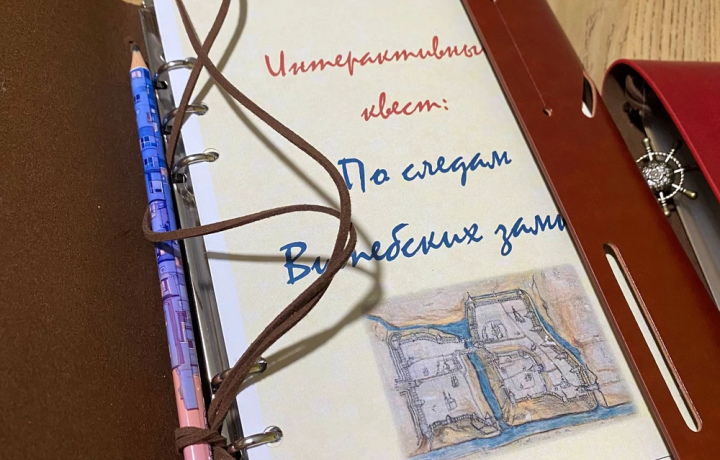 Интерактивны
квест:
По следам
Витебских замк